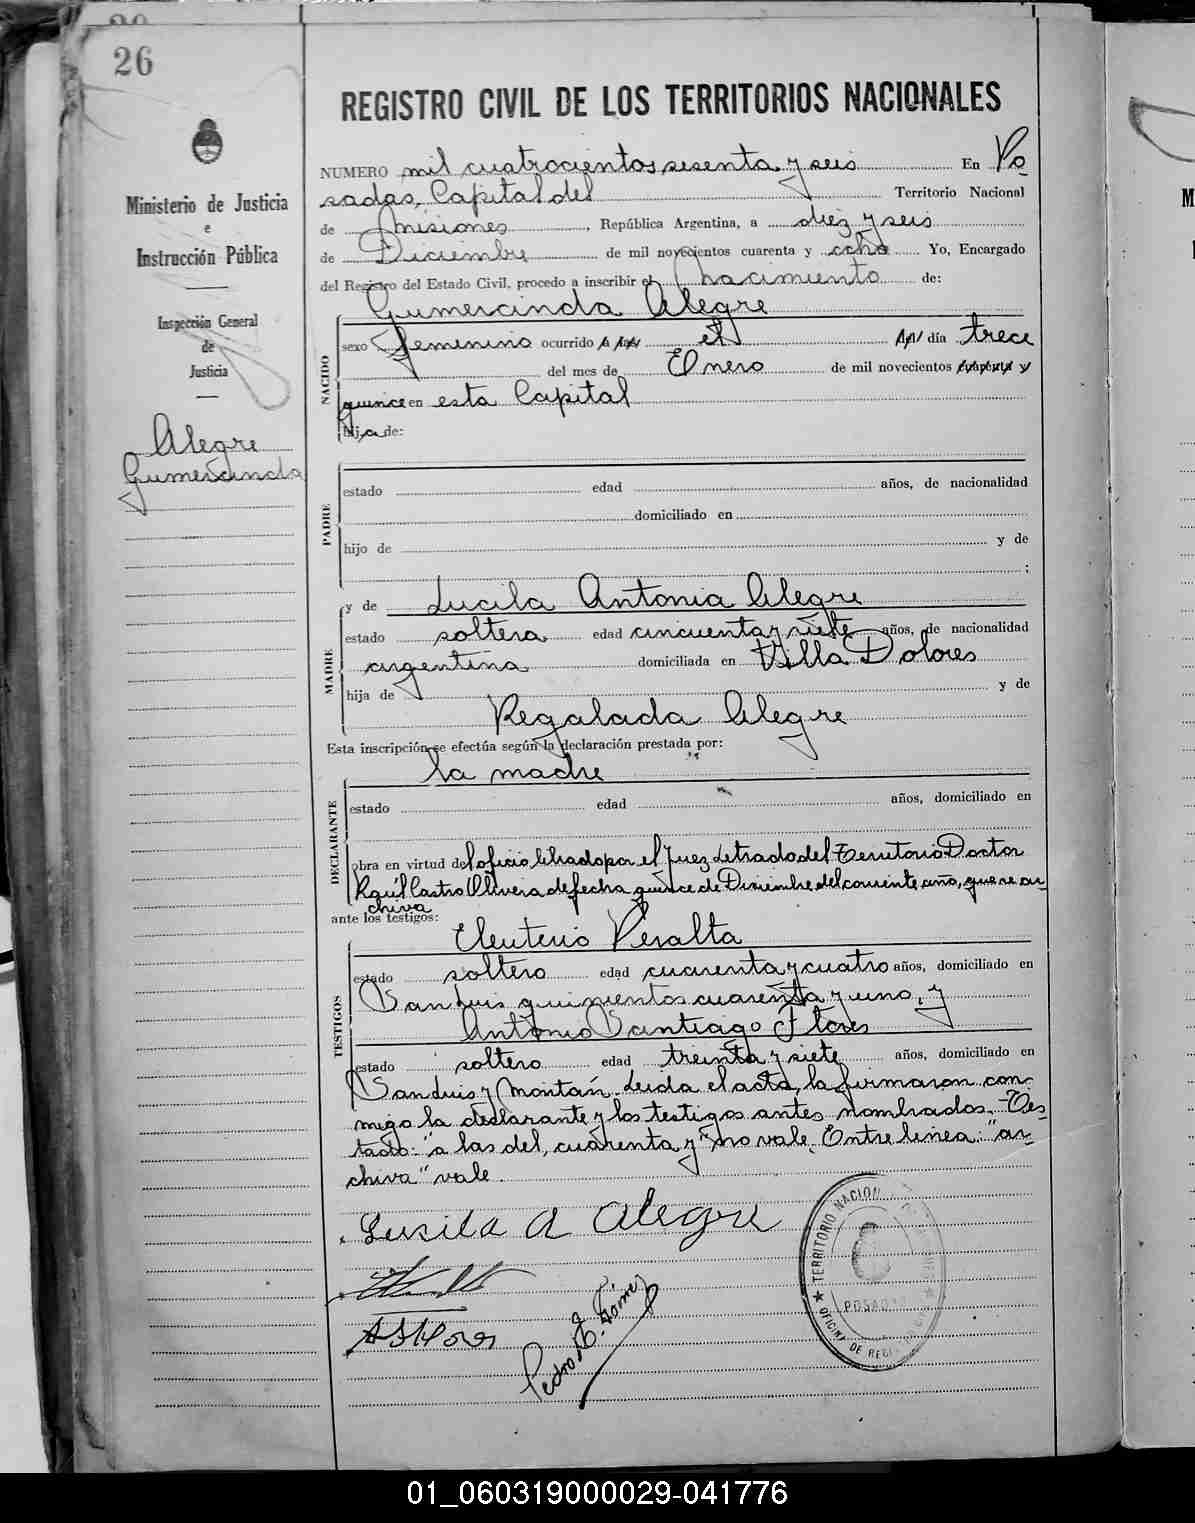 26
REGISTRO CIVIL DE LOS TERRITORIOS NACIONALES
Ministerio de Justicia
e
Instrucción Pública
Inspección General
de
Justicia
Alegre
Gumercinda
NUMERO mil cuatrocientos sesenta y seis En Po
sadas, Capital del Territorio Nacional
de Misiones, República Argentina, a diez y seis
de Diciembre de mil novecientos cuarenta y ocho Yo, Encargado
del Registro del Estado Civil, procedo a inscribir el nacimiento de:
Gumercinda Alegre
NACIDO
sexo femenino ocurrido a las el del día trece
del mes de Enero de mil novecientos cuarenta y
quince en esta Capital
hija de:
PADRE
estado edad años, de nacionalidad
domiciliado en
hijo de y de
;
MADRE
y de Lucila Antonia Alegre
estado soltera edad cincuenta y siete años, de nacionalidad
argentina domiciliada en Villa Dolores
hija de y de
Regalada Alegre
Esta inscripción se efectúa según la declaración prestada por:
la madre
DECLARANTE
estado edad años, domiciliado en
obra en virtud del oficio librado por el Juez Letrado del Territorio Doctor
Raúl Castro Olivera de fecha quince de Diciembre del corriente año, que se ar-
chiva
ante los testigos:
TESTIGOS
Eleuterio Peralta
estado soltero edad cuarenta y cuatro años, domiciliado en
San Luis quinientos cuarenta y uno, y
Antonio Santiago Flores
estado soltero edad treinta y siete años, domiciliado en
San Luis y Montán. Leida el acta, la firmaron con-
migo la declarante y los testigos antes nombrados. Tes-
tado: "a las del, cuarenta y" no vale. Entre linea: "ar-
chiva" vale.
Lusila A Alegre
ASFlores
Pedro
TERRITORIO NACIONAL
POSADAS
OFICINA DE REGISTRO
01_060319000029-041776